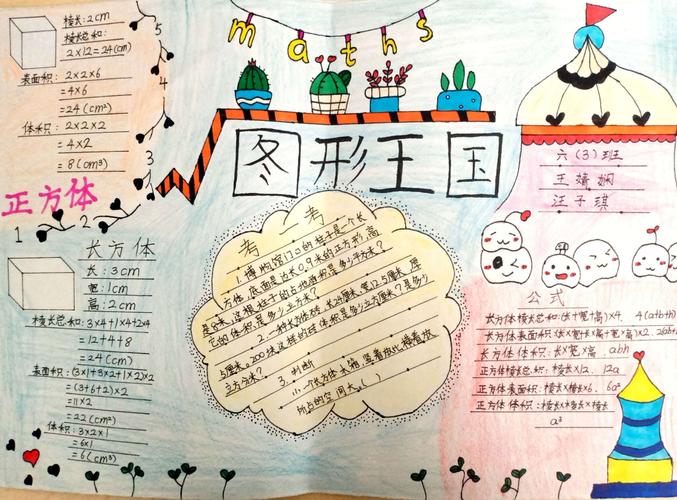 maths
图形王国
棱长:2cm
棱长总和:
2×12=24(cm)
表面积:2×2×6
=4×6
=24(cm²)
体积:2×2×2
=4×2
=8(cm³)
正方体
1 2 3 4 5
长方体
长:3cm
宽:1cm
高:2cm
棱长总和:3×4+1×4+2×4
=12+4+8
=24(cm)
表面积:(3×1+3×2+1×2)×2
=(3+6+2)×2
=11×2
=22(cm²)
体积:3×2×1
=6×1
=6(cm³)
考一考
1.博物馆门口的柱子是一个长
方体,底面是边长0.9米的正方形,高
是8米,这根柱子的占地面积是多少平方米?
它的体积是多少立方米?
2.一种长方体砖,长24厘米,宽12.5厘米,厚
5厘米。200块这样的砖体积是多少立方厘米?是多少
立方分米?
3.判断
小一个长方体木箱,竖着放比横着放
所占的空间大。( )
六(3)班
王婧娴
汪子琪
公式
长方体棱长总和:(长+宽+高)×4. 4(a+b+h)
长方体表面积:(长×宽+长×高+宽×高)×2.
长方体体积:长×宽×高. abh
正方体棱长总和:棱长×12. 12a
正方体表面积:棱长×棱长×6. 6a²
正方体体积:棱长×棱长×棱长
a³